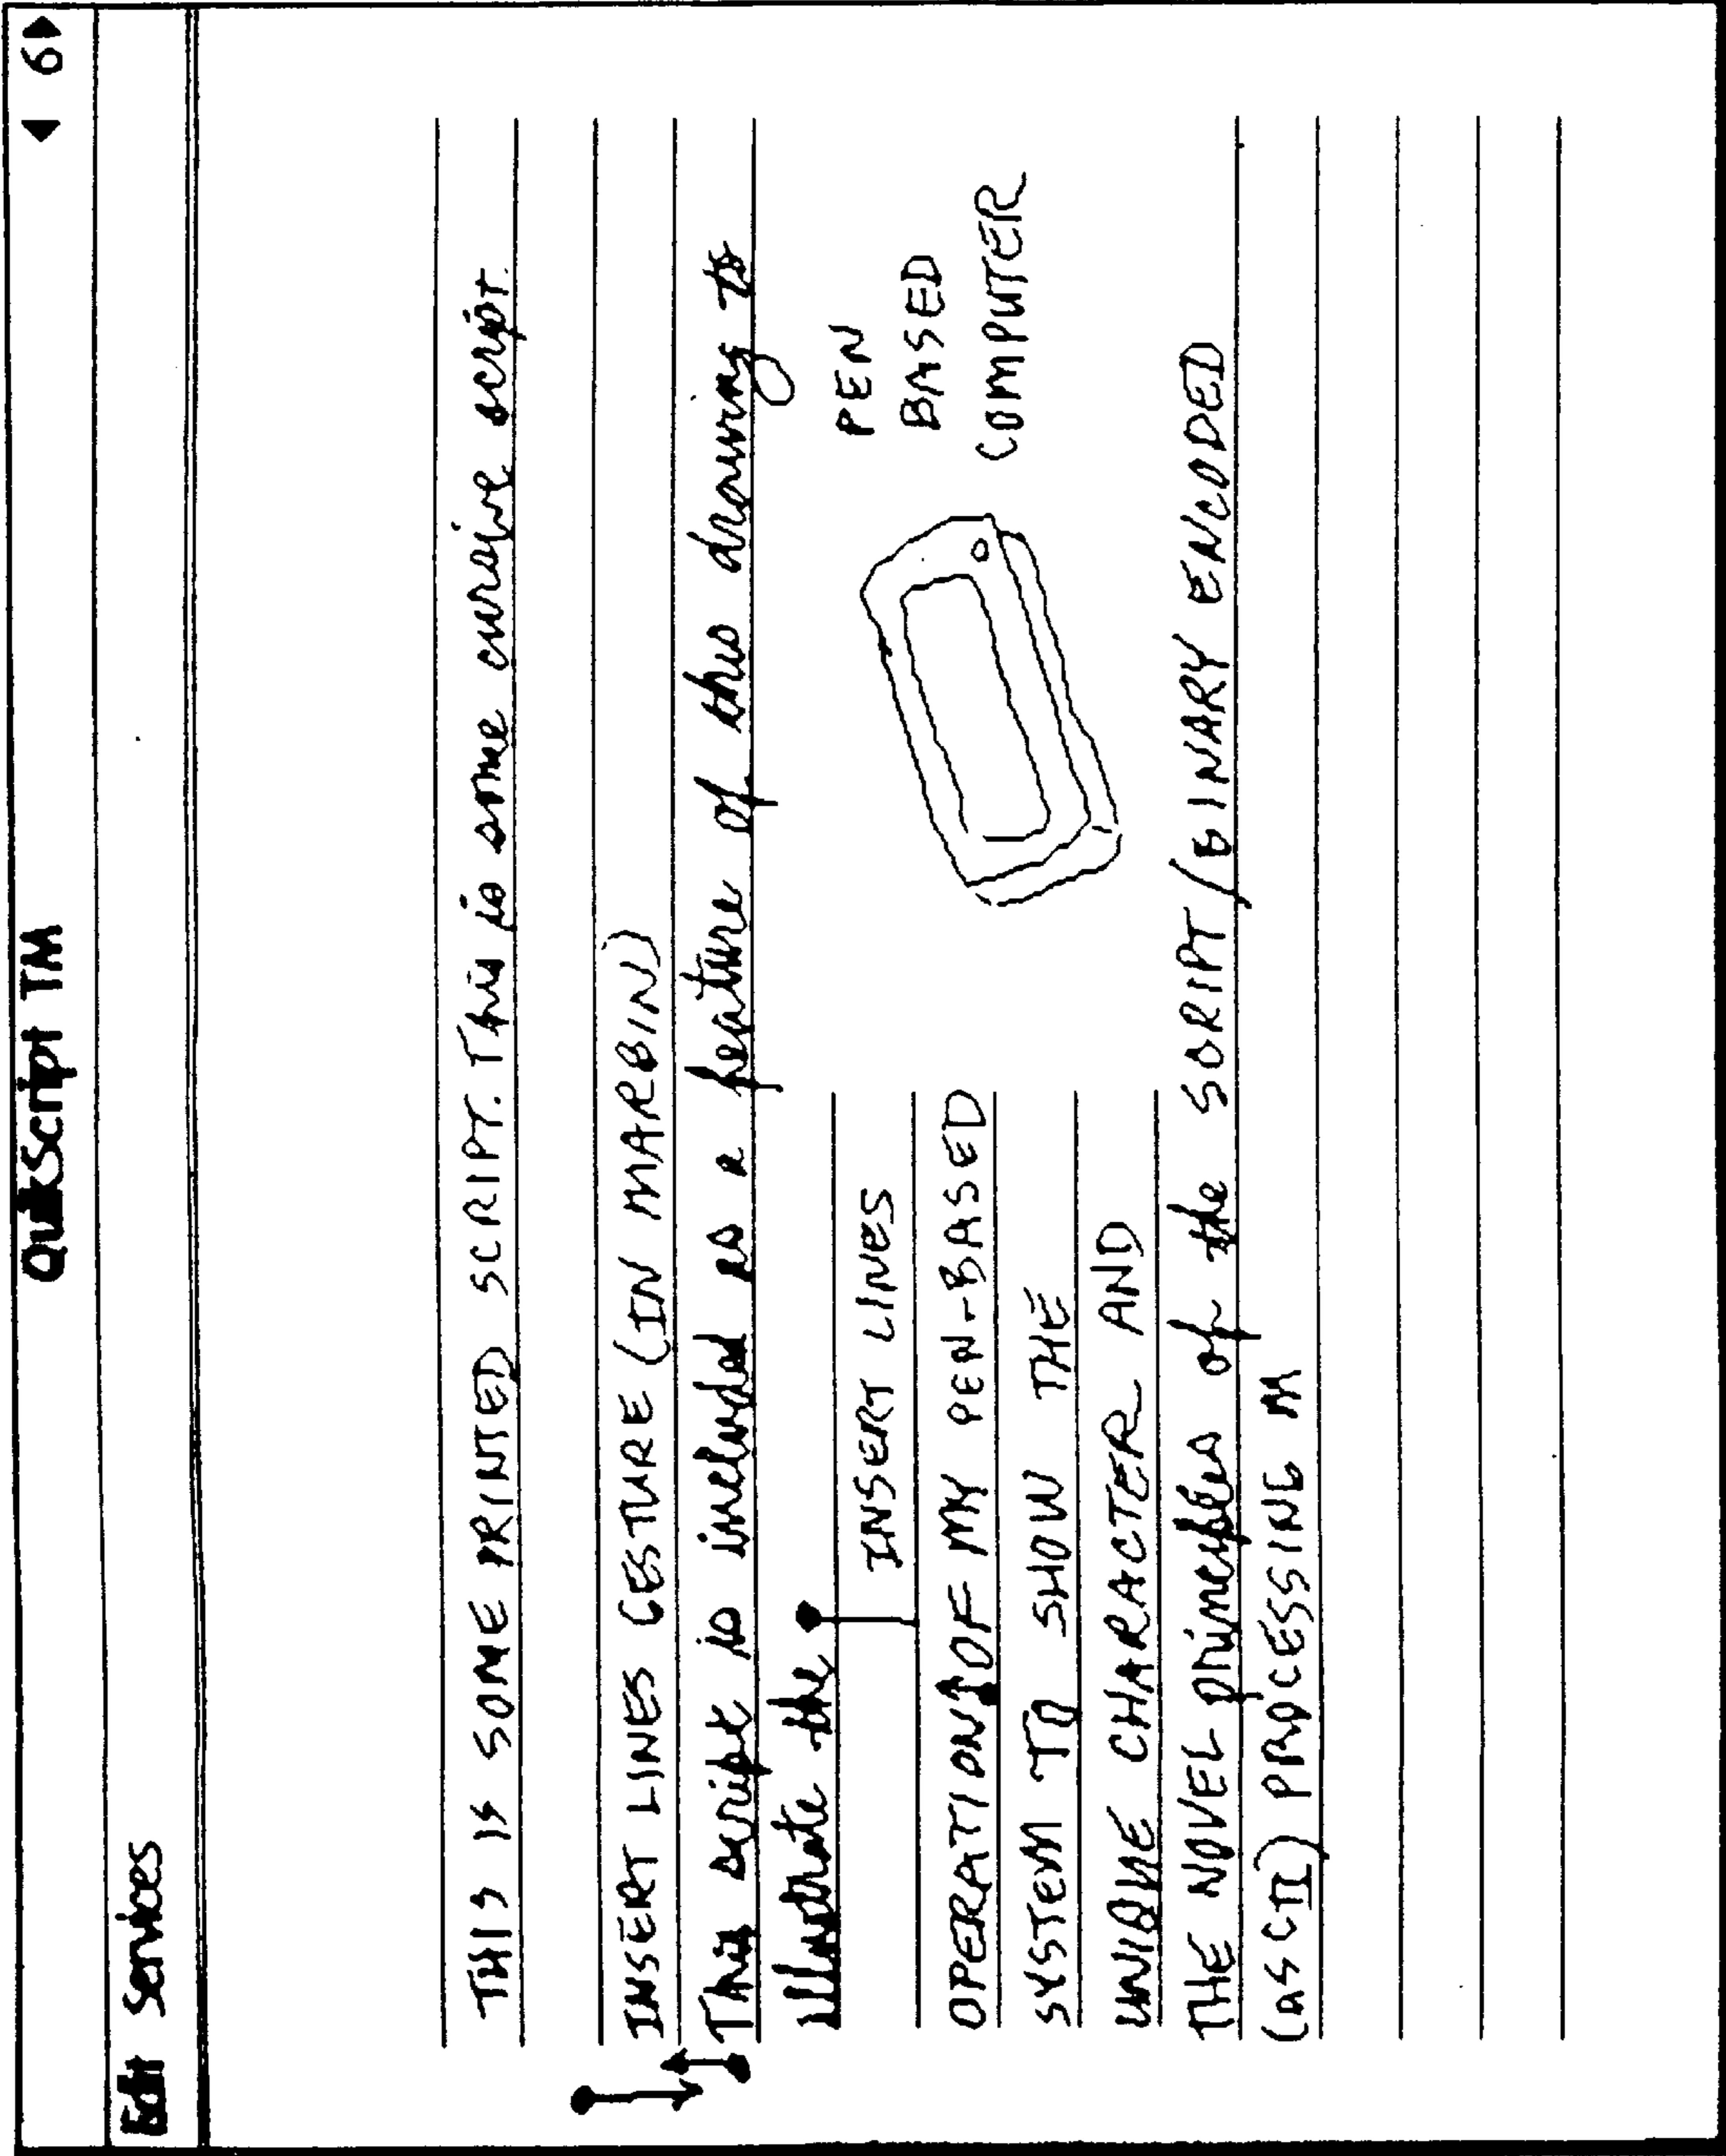 QuikScript TM
6
Edit Services
THIS IS SOME PRINTED SCRIPT. This is some cursive script.
INSERT LINES GESTURE (IN MARGIN)
This script is included as a feature of this drawing to
illustrate the
INSERT LINES
PEN
BASED
COMPUTER
OPERATION OF MY PEN-BASED
SYSTEM TO SHOW THE
UNIQUE CHARACTER AND
THE NOVEL principles of the SCRIPT/BINARY ENCODED
(ASCII) PROCESSING M